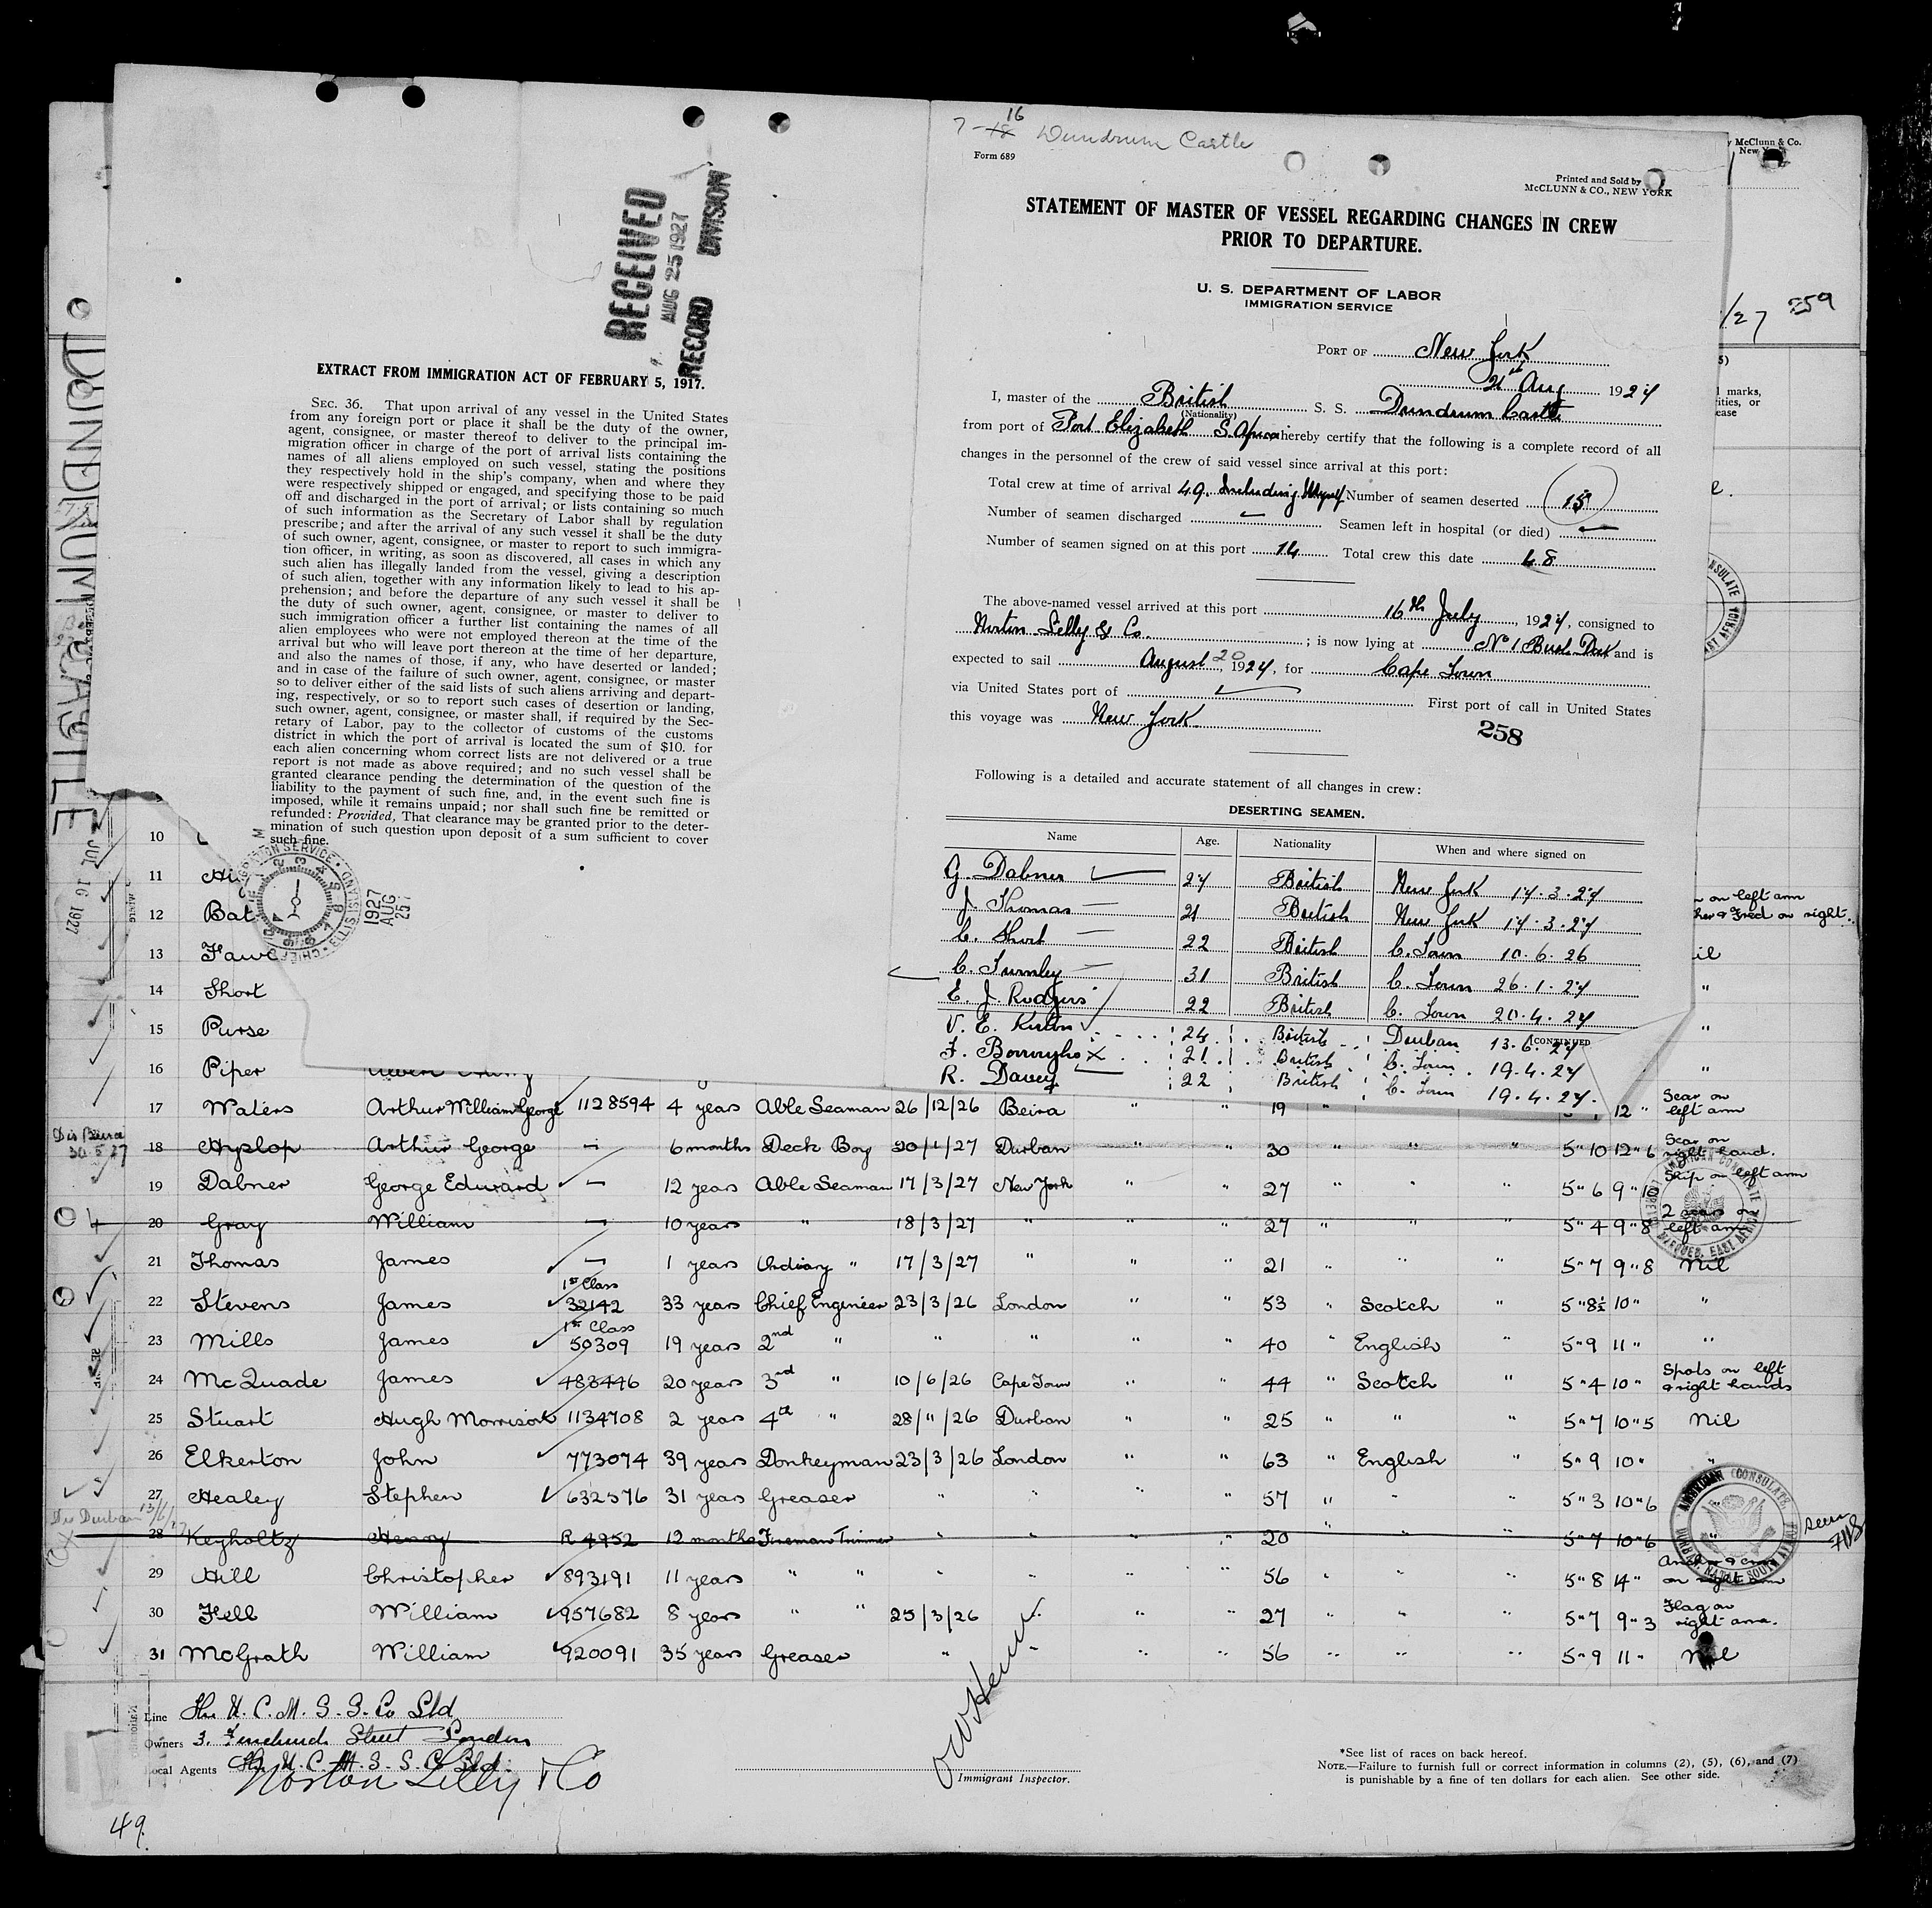 7-16 Dundrum Castle
Form 689
Printed and Sold by
McCLUNN & CO., NEW YORK
STATEMENT OF MASTER OF VESSEL REGARDING CHANGES IN CREW
PRIOR TO DEPARTURE.
U. S. DEPARTMENT OF LABOR
IMMIGRATION SERVICE
PORT OF New York
Aug 1927
I, master of the British S. S. Dundrum Castle
(Nationality)
from port of Port Elizabeth S. Africa hereby certify that the following is a complete record of all
changes in the personnel of the crew of said vessel since arrival at this port:
Total crew at time of arrival 49. Including Myself Number of seamen deserted 15
Number of seamen discharged Seamen left in hospital (or died)
Number of seamen signed on at this port 14 Total crew this date 48
The above-named vessel arrived at this port 16th July, 1927, consigned to
Norton Lilly & Co. ; is now lying at No 1 Bush Dock and is
expected to sail August 20 1927, for Cape Town
via United States port of First port of call in United States
this voyage was New York
258
Following is a detailed and accurate statement of all changes in crew:
DESERTING SEAMEN.
Name Age. Nationality When and where signed on
G. Dabner 27 British New York 17.3.27
J. Thomas 21 British New York 17.3.27
C. Short 22 British C. Town 10.6.26
C. 31 British C. Town 26.1.27
E. J. Rodgers 22 British C. Town 20.4.27
V. E. 24 British Durban 13.6.27
CONTINUED
F. 21 British C. Town 19.4.27
R. Davey 22 British C. Town 19.4.27
RECEIVED
AUG 25 1927
RECORD DIVISION
EXTRACT FROM IMMIGRATION ACT OF FEBRUARY 5, 1917.
SEC. 36. That upon arrival of any vessel in the United States
from any foreign port or place it shall be the duty of the owner,
agent, consignee, or master thereof to deliver to the principal im-
migration officer in charge of the port of arrival lists containing the
names of all aliens employed on such vessel, stating the positions
they respectively hold in the ship's company, when and where they
were respectively shipped or engaged, and specifying those to be paid
off and discharged in the port of arrival; or lists containing so much
of such information as the Secretary of Labor shall by regulation
prescribe; and after the arrival of any such vessel it shall be the duty
of such owner, agent, consignee, or master to report to such immigra-
tion officer, in writing, as soon as discovered, all cases in which any
such alien has illegally landed from the vessel, giving a description
of such alien, together with any information likely to lead to his ap-
prehension; and before the departure of any such vessel it shall be
the duty of such owner, agent, consignee, or master to deliver to
such immigration officer a further list containing the names of all
alien employees who were not employed thereon at the time of the
arrival but who will leave port thereon at the time of her departure,
and also the names of those, if any, who have deserted or landed;
and in case of the failure of such owner, agent, consignee, or master
so to deliver either of the said lists of such aliens arriving and depart-
ing, respectively, or so to report such cases of desertion or landing,
such owner, agent, consignee, or master shall, if required by the Sec-
retary of Labor, pay to the collector of customs of the customs
district in which the port of arrival is located the sum of $10. for
each alien concerning whom correct lists are not delivered or a true
report is not made as above required; and no such vessel shall be
granted clearance pending the determination of the question of the
liability to the payment of such fine, and, in the event such fine is
imposed, while it remains unpaid; nor shall such fine be remitted or
refunded: Provided, That clearance may be granted prior to the deter-
mination of such question upon deposit of a sum sufficient to cover
such fine.
1927
AUG
25
DUNDRUM CASTLE
JUL 16 1927
McClunn & Co.
New York
/27 259
marks,
ities, or
ease
10
11 Hi
12 Bat
13 Fawc
14 Short
15 Purse
16 Piper
n on left arm
Fred on right
il
17 Waters Arthur William George 1128594 4 years Able Seaman 26/12/26 Beira " " 19 " 12 " Scar on left arm
Dis Beira 30.5.27
18 Hyslop Arthur George - 6 months Deck Boy 20/1/27 Durban " " 30 " " " 5"10 12"6 Scar on right hand.
19 Dabner George Edward - 12 years Able Seaman 17/3/27 New York " " 27 " " " 5"6 9"10 Ship on left arm
20 Gray William - 10 years " 18/3/27 " " " 27 " " " 5"4 9"8 2 scars on left arm
21 Thomas James - 1 years Ordinary " 17/3/27 " " " 21 " " " 5"7 9"8 Nil
22 Stevens James 1st Class 32142 33 years Chief Engineer 23/3/26 London " " 53 " Scotch " 5"8½ 10" "
23 Mills James 1st Class 50309 19 years 2nd " " " " " 40 " English 5"9 11" "
24 McQuade James 483446 20 years 3rd " 10/6/26 Cape Town " " 44 " Scotch " 5"4 10" Spots on left & right hands
25 Stuart Hugh Morrison 1134708 2 years 4th " 28/11/26 Durban " " 25 " " " 5"7 10"5 Nil
26 Elkerton John 773074 39 years Donkeyman 23/3/26 London " " 63 " English " 5"9 10" "
27 Healey Stephen 632576 31 years Greaser " " " " 57 " " " 5"3 10"6
Dis Durban 13/6/27
28 Keyholtz Henry R 4952 12 months Fireman Trimmer " " " " 20 " " " 5"7 10"6 "
seen
29 Hill Christopher 893191 11 years " " " " " " 56 " " " 5"8 14" on right arm
30 Fell William 957682 8 years " " 25/3/26 " " 27 " " " 5"7 9"3 Flag on right arm.
31 McGrath William 920091 35 years Greaser " " " " 56 " " " 5"9 11" Nil
Line The U. C. M. S. S. Co Ltd
Owners 3. Fenchurch Street London
Local Agents The U. C. M. S. S. Co Ltd.
Norton Lilly & Co
Immigrant Inspector.
*See list of races on back hereof.
NOTE.—Failure to furnish full or correct information in columns (2), (5), (6), and (7)
is punishable by a fine of ten dollars for each alien. See other side.
49.